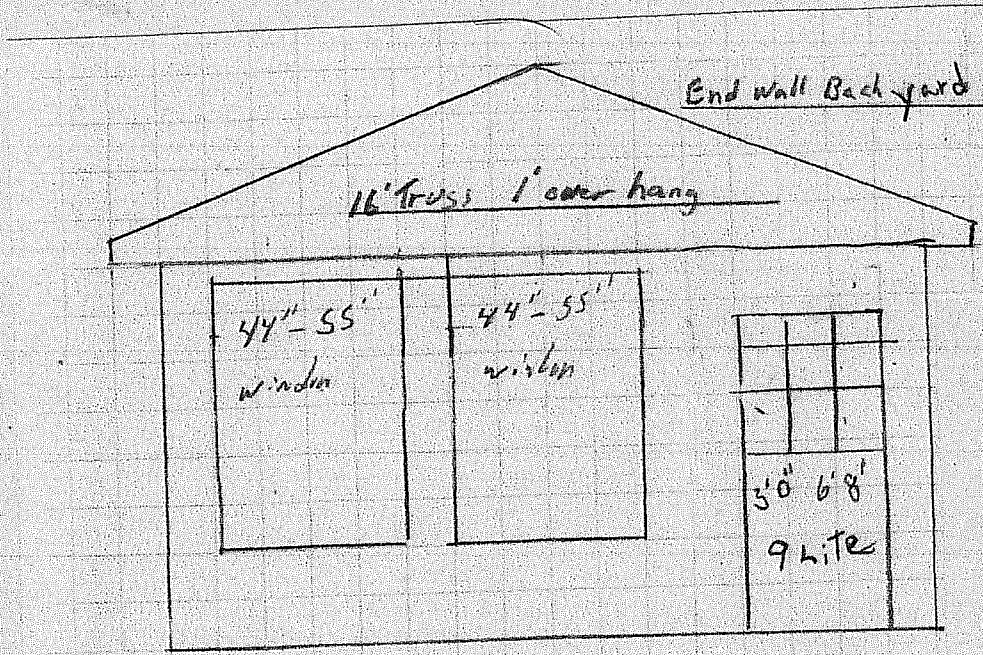 End Wall Back yard
16' Truss 1' over hang
44"-55"
window
44"-55"
window
3'0" 6'8"
9 Lite